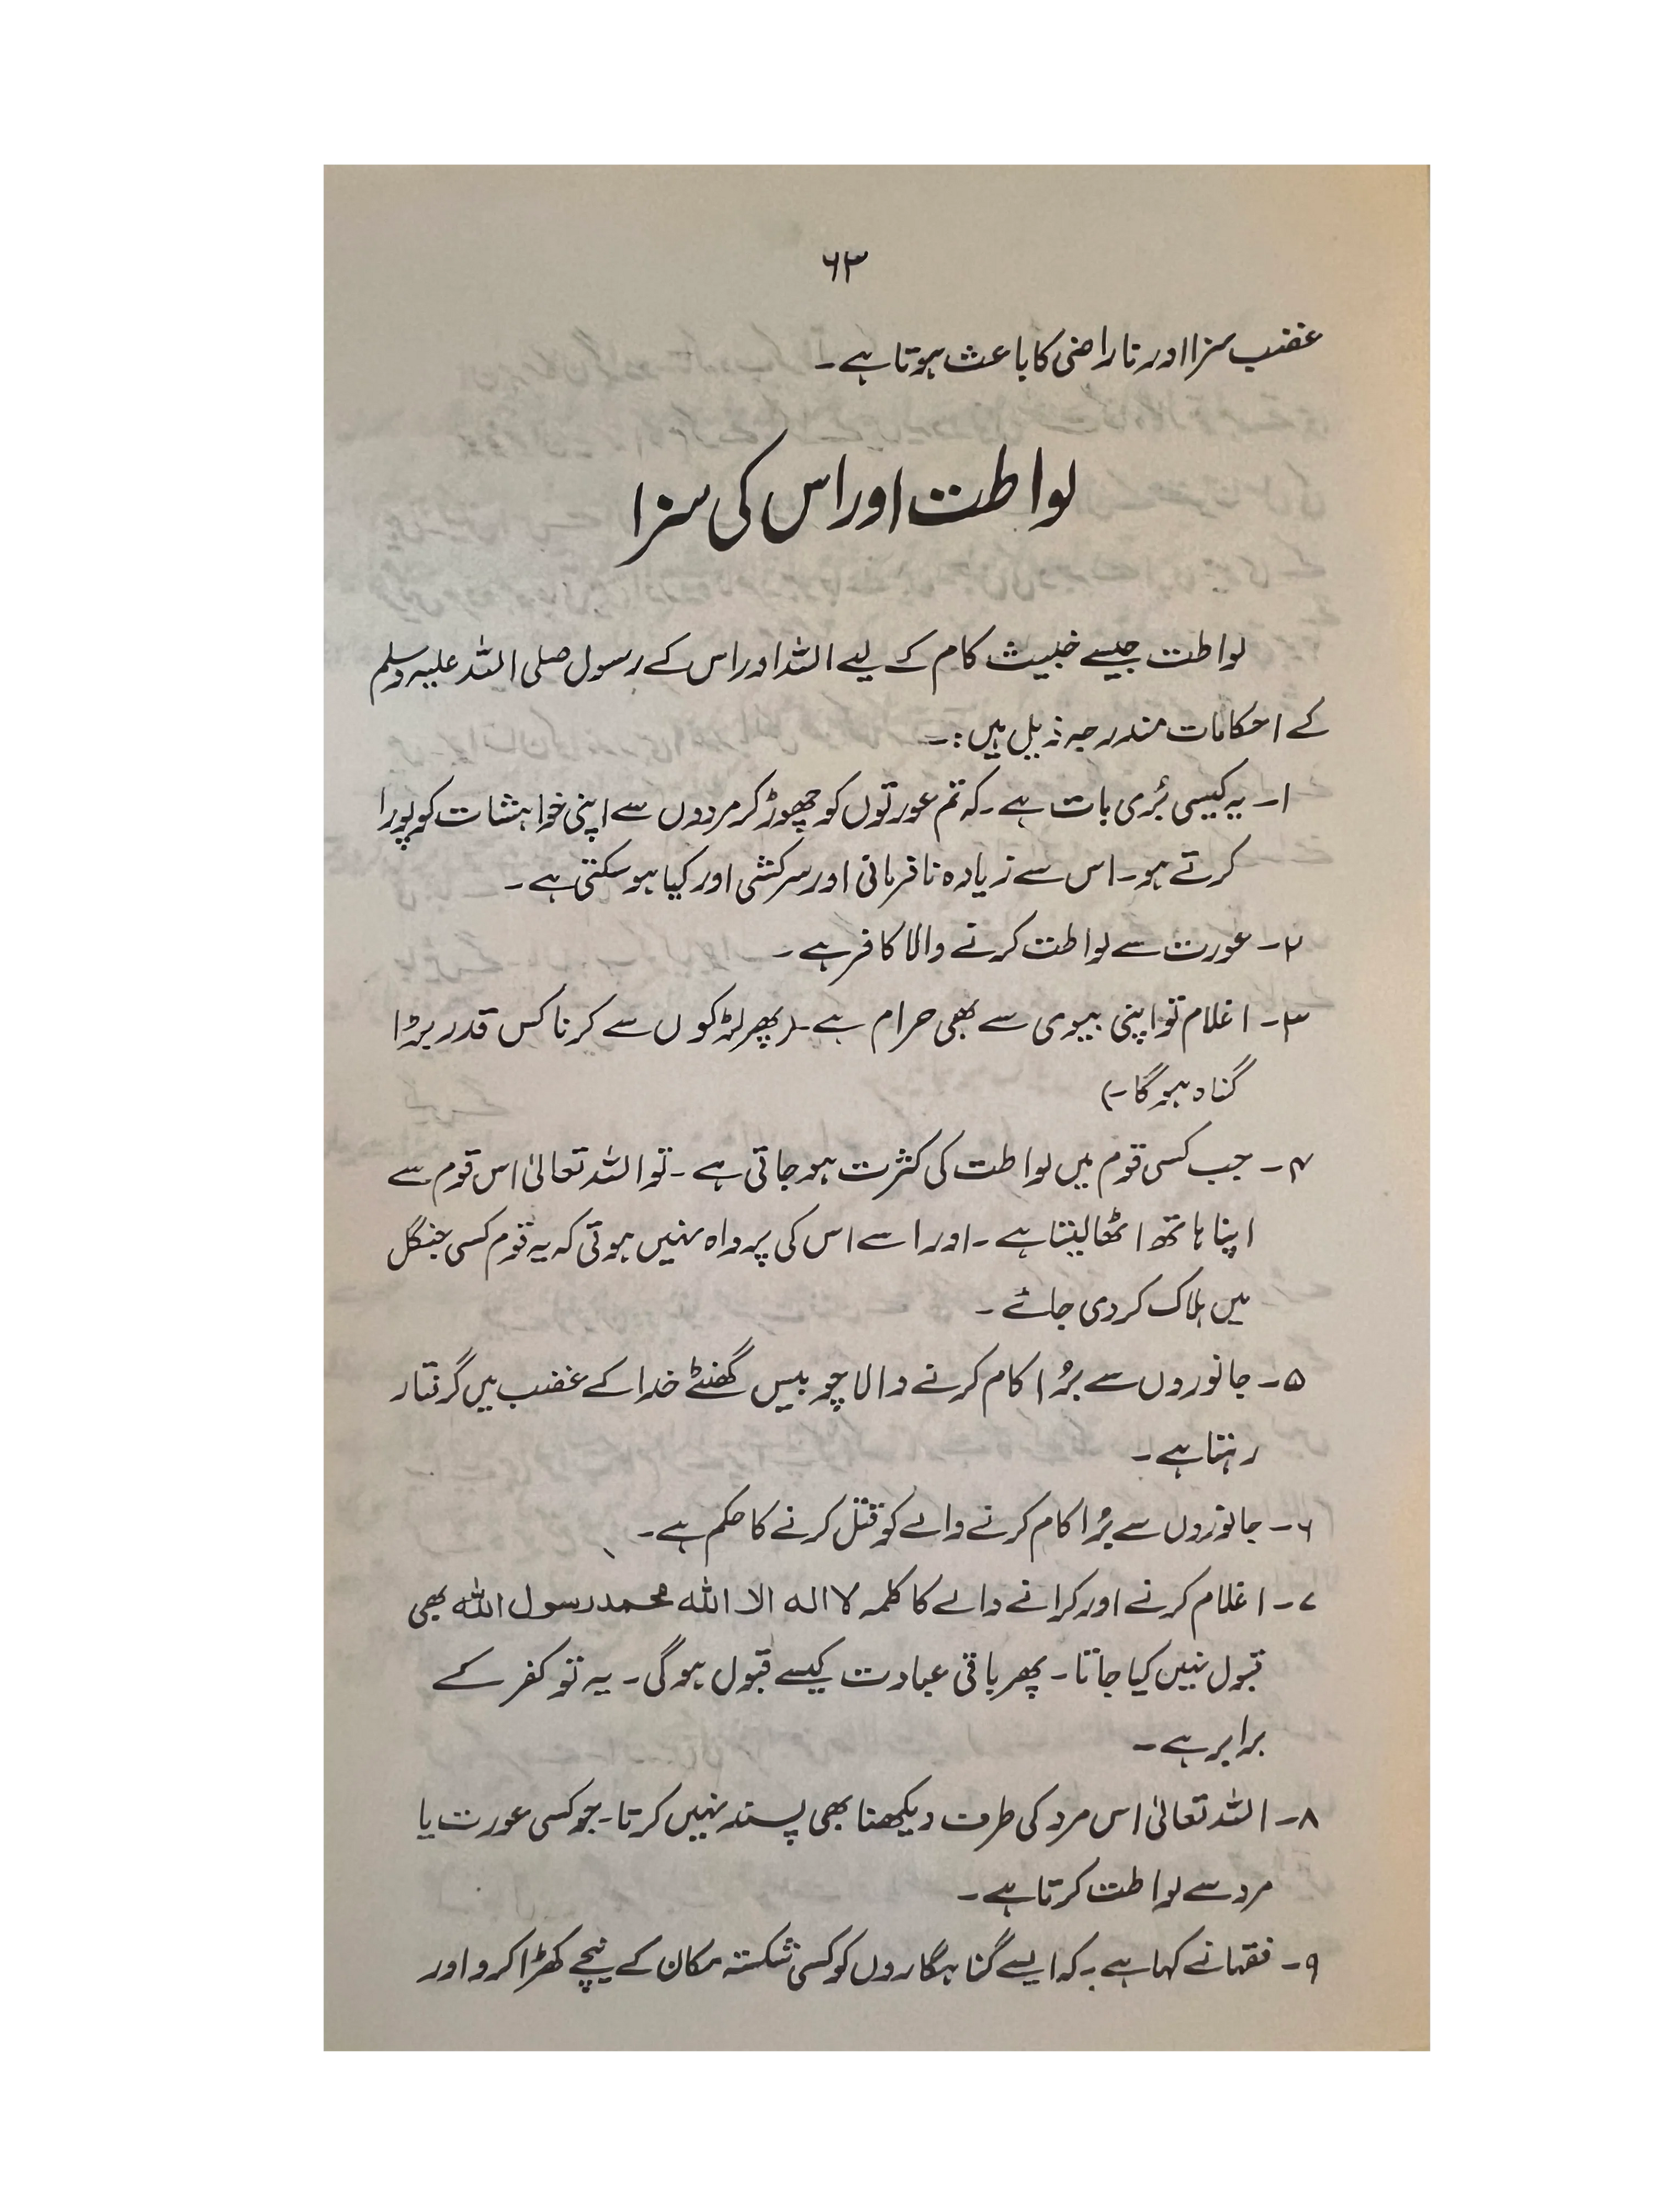 ۶۳
غضب سزا اور ناراضی کا باعث ہوتا ہے۔
لواطت اور اس کی سزا
لواطت جیسے خبیث کام کے لیے اللہ اور اس کے رسول صلی اللہ علیہ وسلم
کے احکامات مندرجہ ذیل ہیں:۔
۱۔ یہ کیسی بُری بات ہے۔ کہ تم عورتوں کو چھوڑ کر مردوں سے اپنی خواہشات کو پورا
کرتے ہو۔ اس سے زیادہ نافرمانی اور سرکشی اور کیا ہو سکتی ہے۔
۲۔ عورت سے لواطت کرنے والا کافر ہے۔
۳۔ اغلام تو اپنی بیوی سے بھی حرام ہے۔ (پھر لڑکوں سے کرنا کس قدر بڑا
گناہ ہوگا۔)
۴۔ جب کسی قوم میں لواطت کی کثرت ہو جاتی ہے۔ تو اللہ تعالیٰ اس قوم سے
اپنا ہاتھ اٹھا لیتا ہے۔ اور اسے اس کی پرواہ نہیں ہوتی کہ یہ قوم کسی جنگل
میں ہلاک کر دی جائے۔
۵۔ جانوروں سے بُرا کام کرنے والا چوبیس گھنٹے خدا کے غضب میں گرفتار
رہتا ہے۔
۶۔ جانوروں سے بُرا کام کرنے والے کو قتل کرنے کا حکم ہے۔
۷۔ اغلام کرنے اور کرانے والے کا کلمہ لا الہ الا اللہ محمد رسول اللہ بھی
قبول نہیں کیا جاتا۔ پھر باقی عبادت کیسے قبول ہوگی۔ یہ تو کفر کے
برابر ہے۔
۸۔ اللہ تعالیٰ اس مرد کی طرف دیکھنا بھی پسند نہیں کرتا۔ جو کسی عورت یا
مرد سے لواطت کرتا ہے۔
۹۔ فقہا نے کہا ہے۔ کہ ایسے گناہگاروں کو کسی شکستہ مکان کے نیچے کھڑا کرو اور